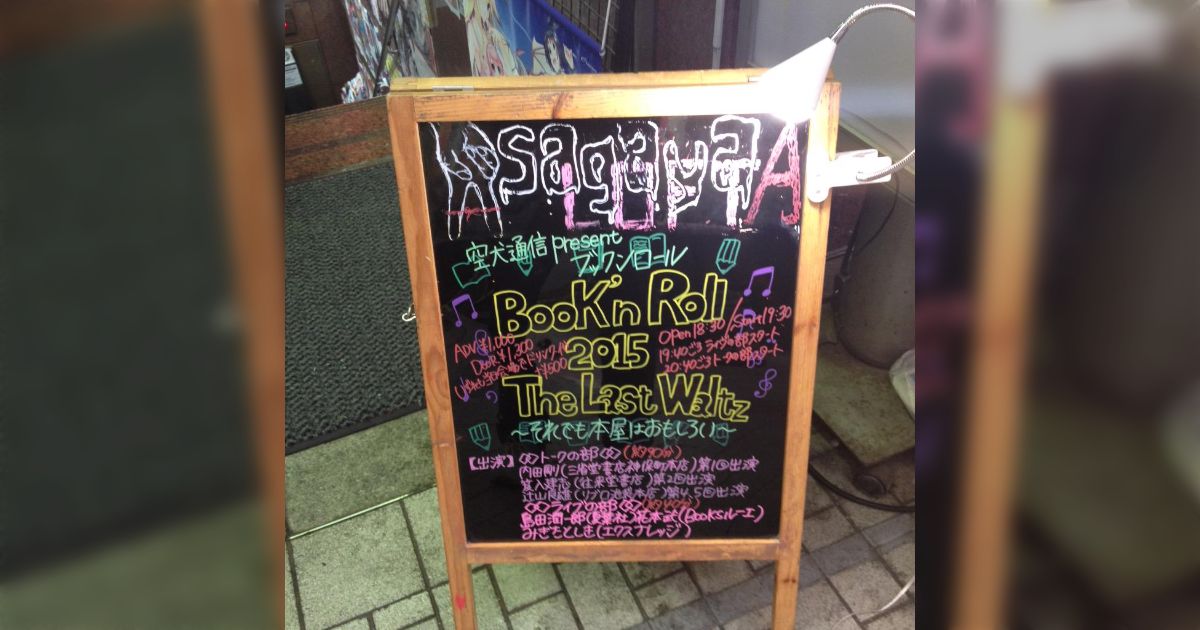 Asagaya
LOFT A
空犬通信 present
ブックンロール
BooK'n Roll
2015
ADV ¥1,000
Door ¥1,300
Open 18:30 / Start 19:30
19:40ごろ ライヴの部スタート
20:40ごろ トークの部スタート
The Last Waltz
～それでも本屋はおもしろい～
【出演】トークの部（約90分）
内田剛（三省堂書店神保町本店）第1回出演
笈入建志（往来堂書店）第2回出演
辻山良雄（リブロ池袋本店）第4、5回出演
ライブの部
島田潤一郎（夏葉社）花本武（BOOKSルーエ）
みぎもとしき（エクスプレッジ）